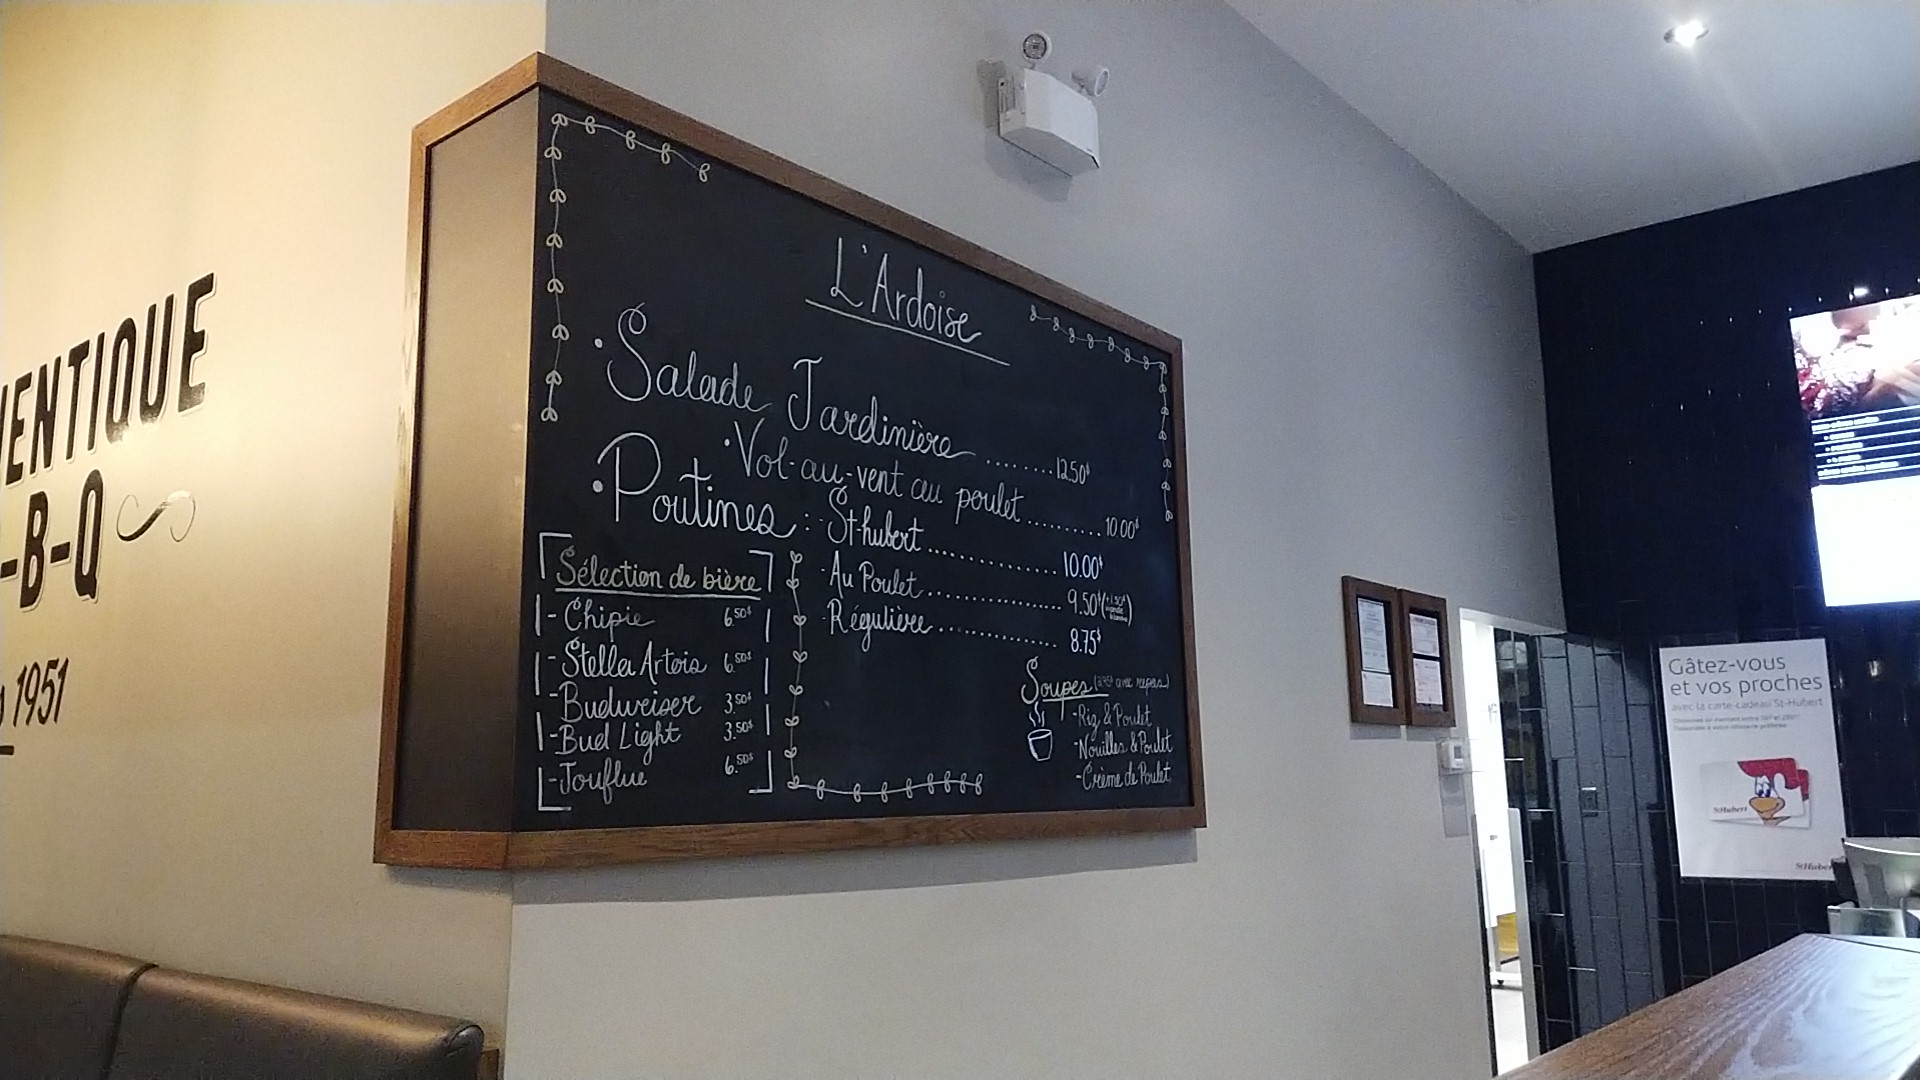 ENTIQUE
-B-Q
1951
L'Ardoise
• Salade Jardinière ........ 12.50$
• Vol-au-vent au poulet .......... 10.00$
• Poutines : - St-hubert .............. 10.00$
- Au Poulet ................ 9.50$
- Régulière .............. 8.75$
Sélection de bière
- Chipie 6.50$
- Stella Artois 6.50$
- Budweiser 3.50$
- Bud Light 3.50$
- Jouflue 6.50$
Soupes (avec repas)
- Riz & Poulet
- Nouilles & Poulet
- Crème de Poulet
Gâtez-vous
et vos proches
avec la carte-cadeau St-Hubert
St-Hubert
St-Hubert